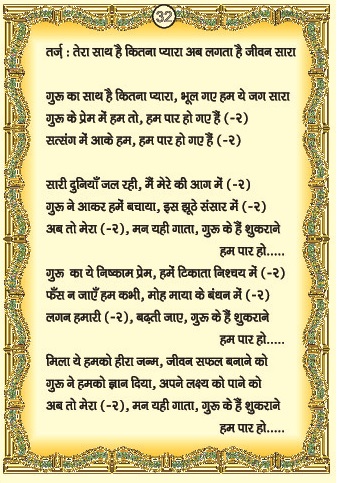 32
तर्ज़ : तेरा साथ है कितना प्यारा अब लगता है जीवन सारा
गुरू का साथ है कितना प्यारा, भूल गए हम ये जग सारा
गुरू के प्रेम में हम तो, हम पार हो गए हैं (-२)
सत्संग में आके हम, हम पार हो गए हैं (-२)
सारी दुनियाँ जल रही, मैं मेरे की आग में (-२)
गुरू ने आकर हमें बचाया, इस झूठे संसार में (-२)
अब तो मेरा (-२), मन यही गाता, गुरू के हैं शुकराने
हम पार हो.....
गुरू का ये निष्काम प्रेम, हमें टिकाता निश्चय में (-२)
फँस न जाएँ हम कभी, मोह माया के बंधन में (-२)
लगन हमारी (-२), बढ़ती जाए, गुरू के हैं शुकराने
हम पार हो.....
मिला ये हमको हीरा जन्म, जीवन सफल बनाने को
गुरू ने हमको ज्ञान दिया, अपने लक्ष्य को पाने को
अब तो मेरा (-२), मन यही गाता, गुरू के हैं शुकराने
हम पार हो.....